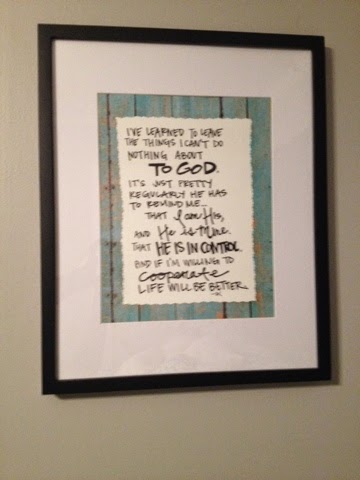 I'VE LEARNED TO LEAVE
THE THINGS I CAN'T DO
NOTHING ABOUT
TO GOD.
IT'S JUST PRETTY
REGULARLY HE HAS
TO REMIND ME...
THAT I am His,
AND He is Mine.
THAT HE IS IN CONTROL.
AND IF I'M WILLING TO
cooperate
LIFE WILL BE BETTER.